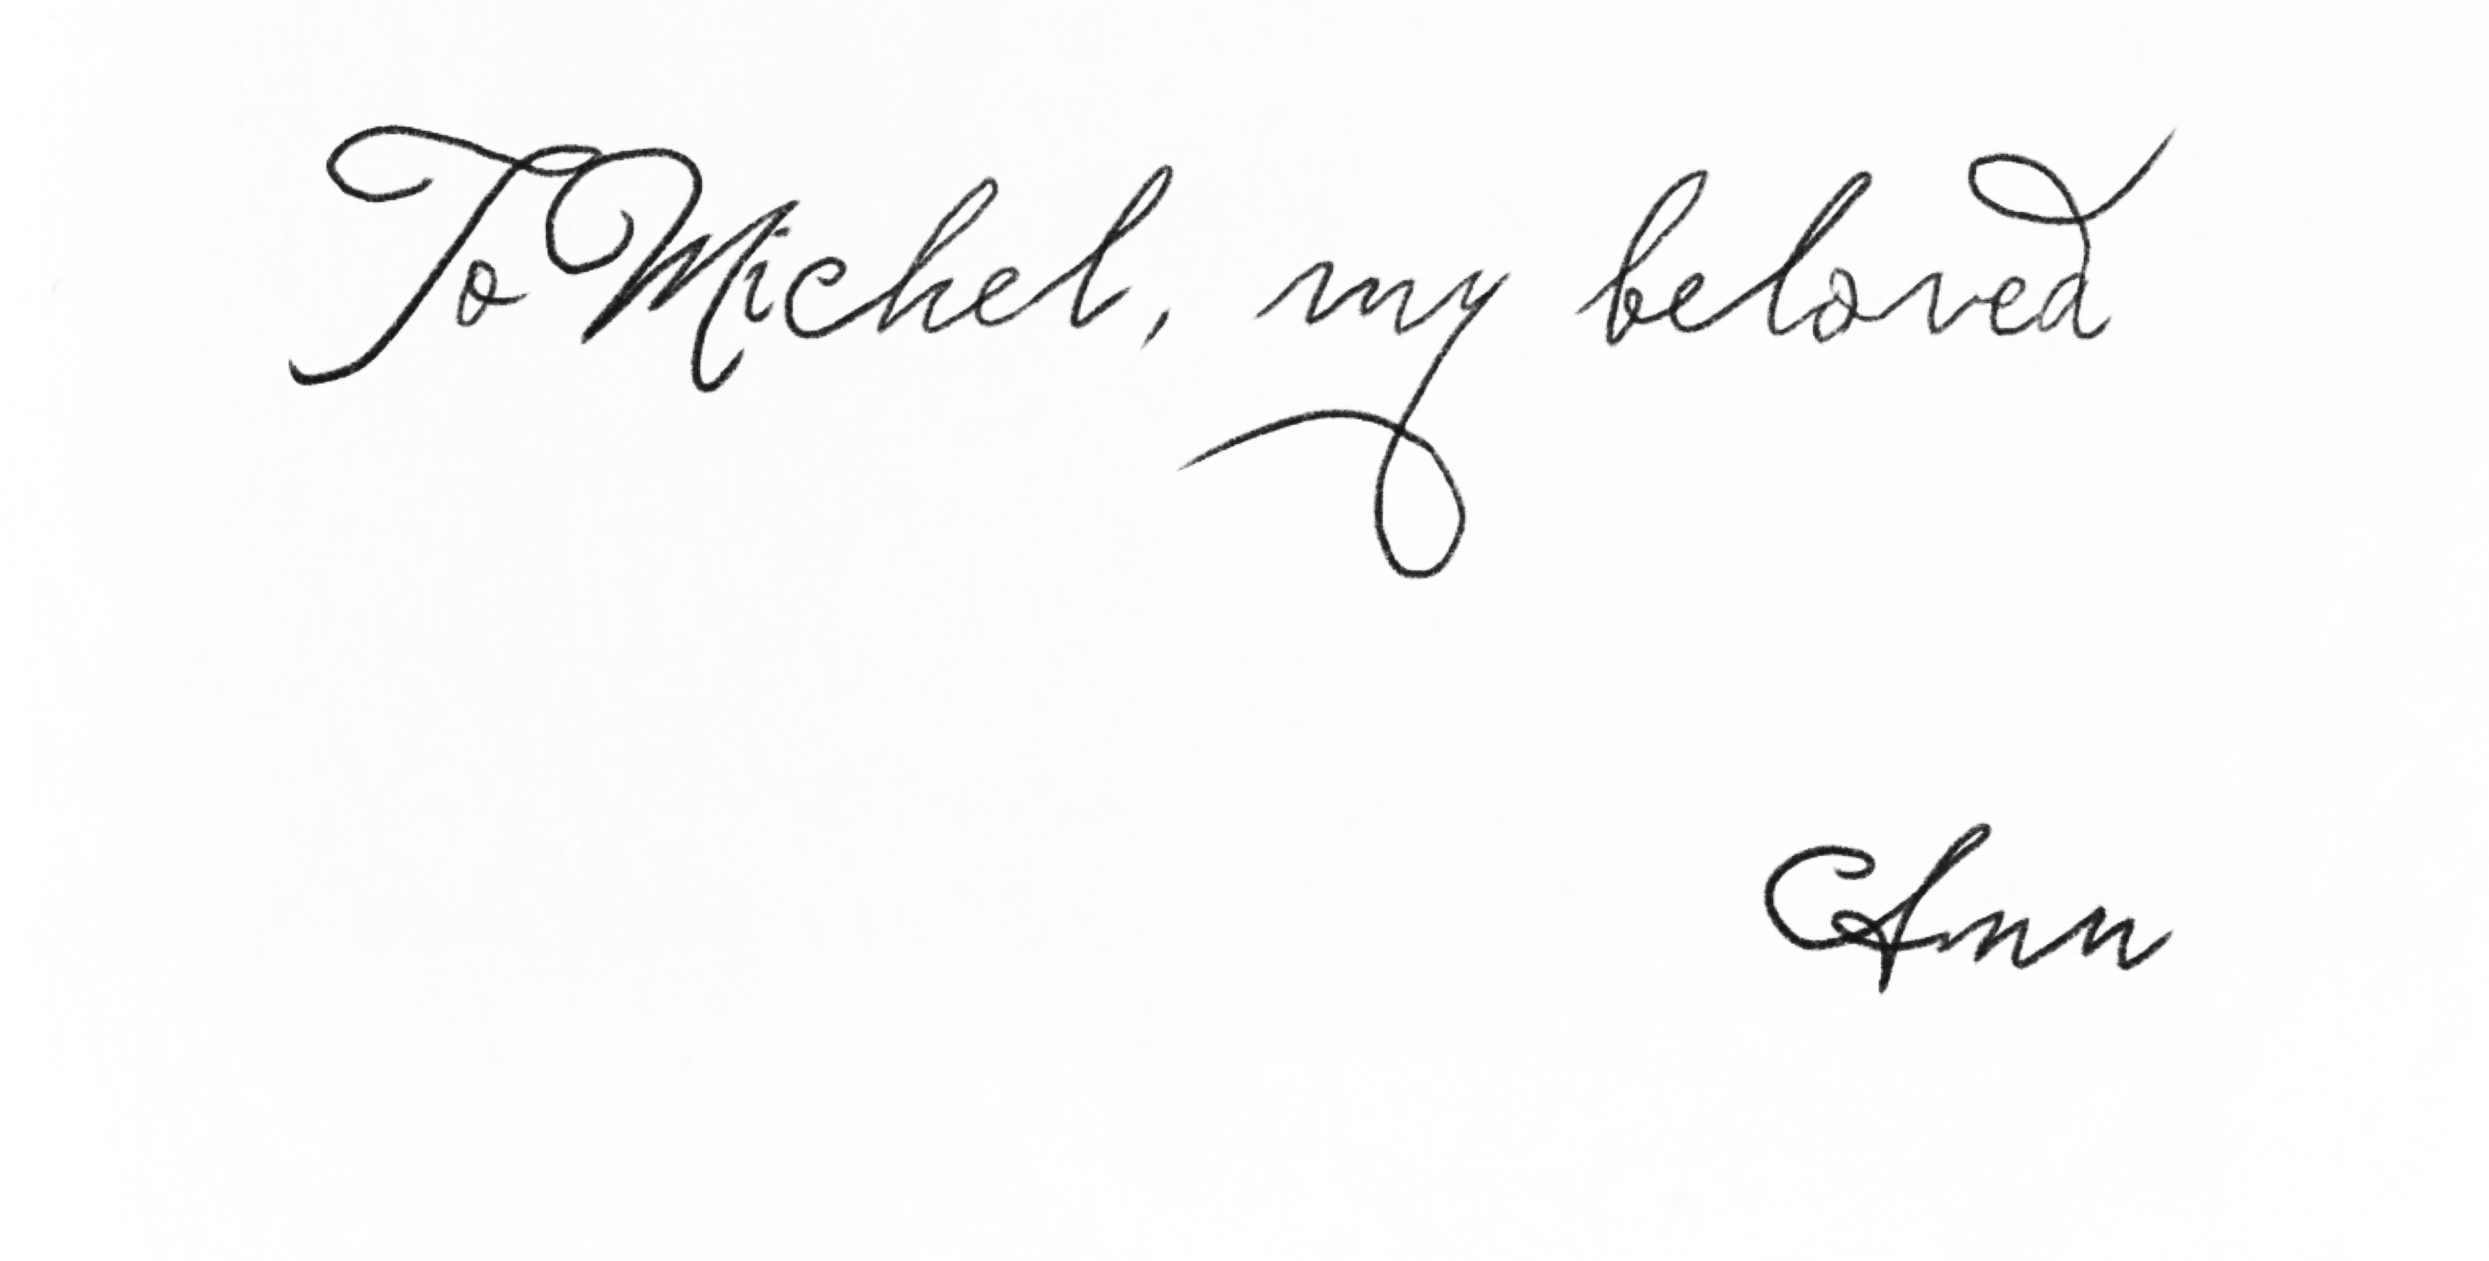 To Michel, my beloved
Ann